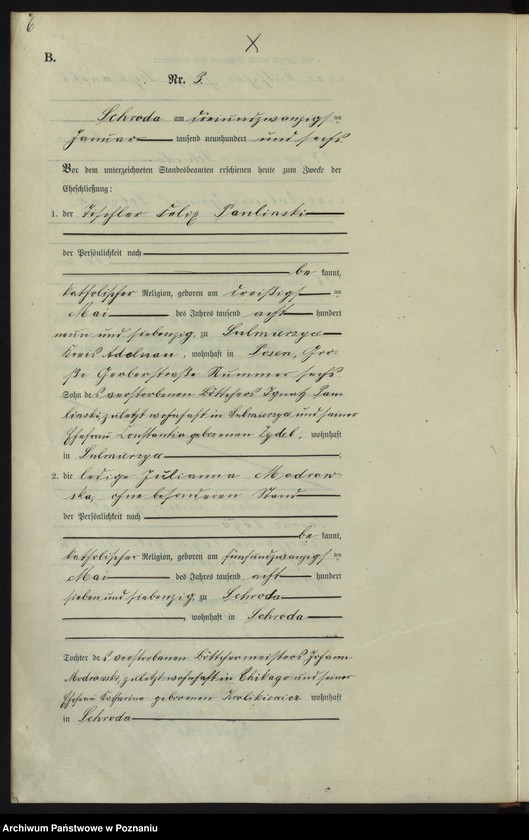 6
B.
Nr. 3.
Schroda am dreiundzwanzigs ten
Januar tausend neunhundert und sechs
Vor dem unterzeichneten Standesbeamten erschienen heute zum Zwecke der
Eheschließung:
1. der Tischler Felix Paulinski
der Persönlichkeit nach
be kannt,
katholischer Religion, geboren am dreißigs ten
Mai des Jahres tausend acht hundert
neun und siebenzig, zu Sulmierzyce
Kreis Adelnau, wohnhaft in Posen, Gro-
ße Gerberstraße Nummer sechs
Sohn des verstorbenen Böttchers Ignatz Pau-
linski, zuletzt wohnhaft in Sulmierzyce und seiner
Ehefrau Constantia geborenen, wohnhaft
in Sulmierzyce
2. die ledige Julianna Modrow-
ska, ohne besonderen Stand
der Persönlichkeit nach
be kannt,
katholischer Religion, geboren am fünfundzwanzigs ten
Mai des Jahres tausend acht hundert
sieben und siebenzig, zu Schroda
, wohnhaft in Schroda
Tochter des verstorbenen Böttchermeisters Johann
Modrowski, zuletzt wohnhaft in Chikago und seiner
Ehefrau Katharina geborenen wohnhaft
in Schroda
Archiwum Państwowe w Poznaniu